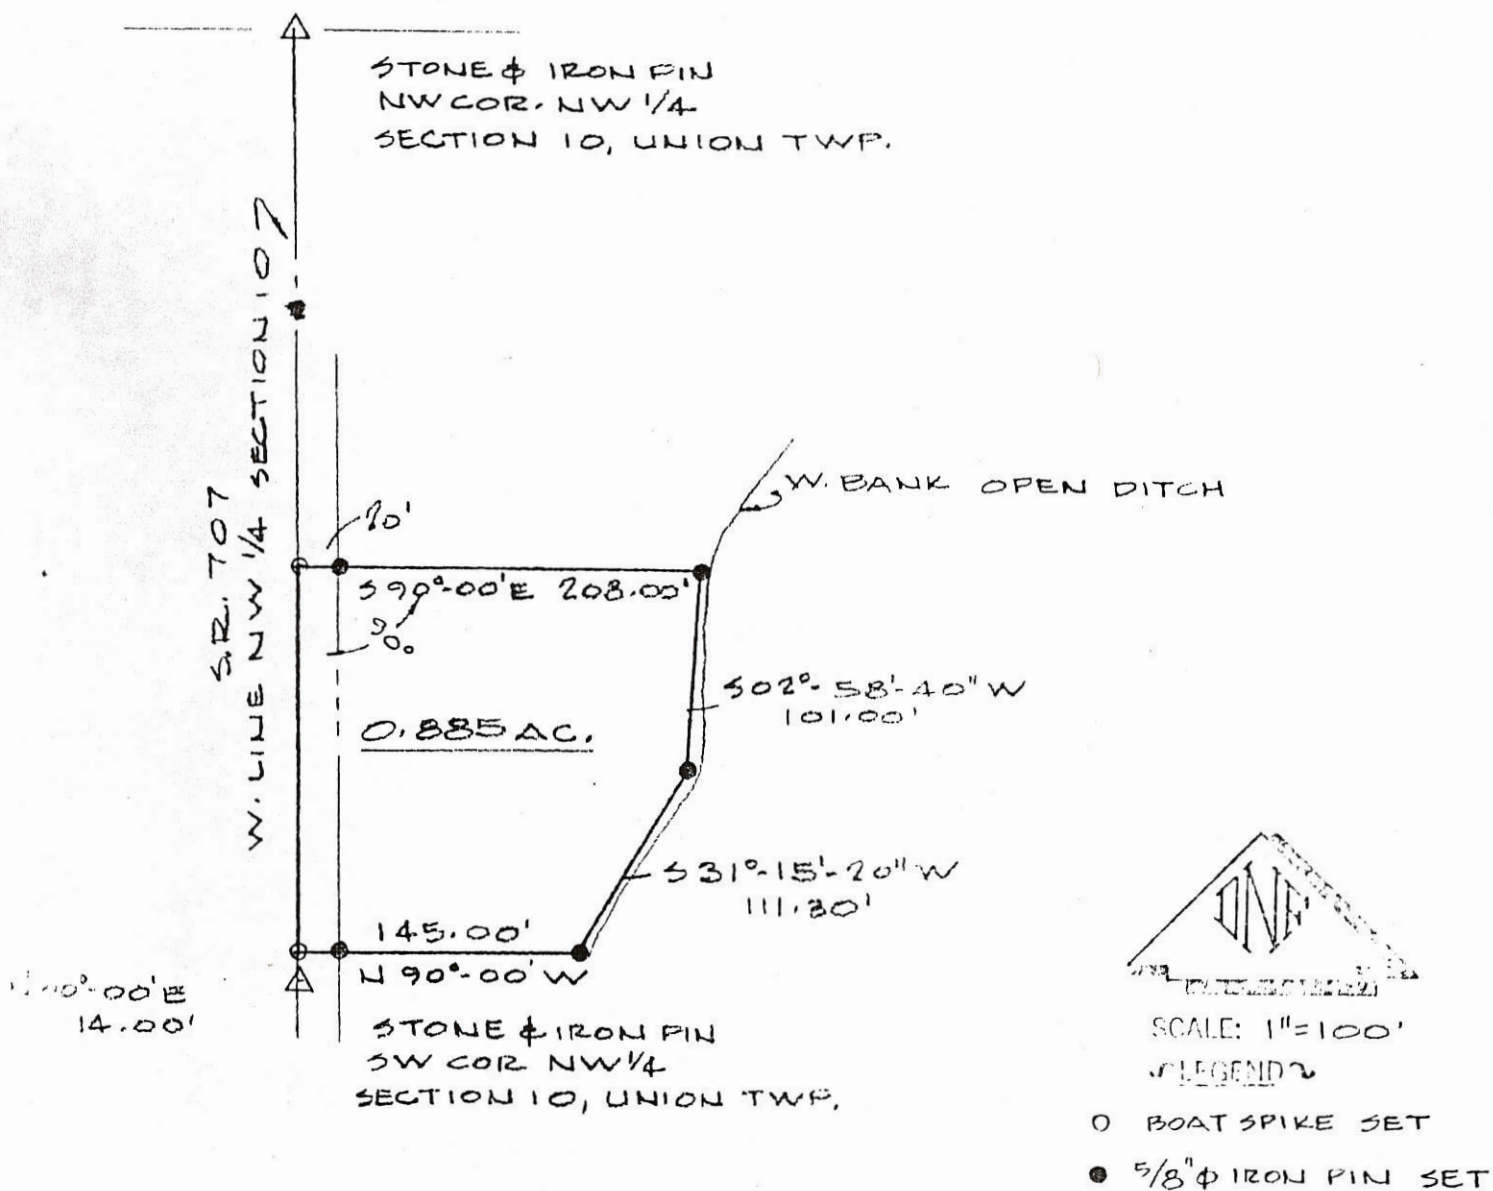 STONE & IRON PIN
NW COR. NW 1/4
SECTION 10, UNION TWP.
S.R. 707
W. LINE NW 1/4 SECTION 10
W. BANK OPEN DITCH
20'
S 90°-00' E 208.00'
S 02°-58'-40" W
101.00'
0.885 AC.
S 31°-15'-20" W
111.30'
145.00'
N 90°-00' W
00'E
14.00'
STONE & IRON PIN
SW COR NW 1/4
SECTION 10, UNION TWP.
SCALE: 1"=100'
LEGEND
○ BOAT SPIKE SET
● 5/8"ϕ IRON PIN SET